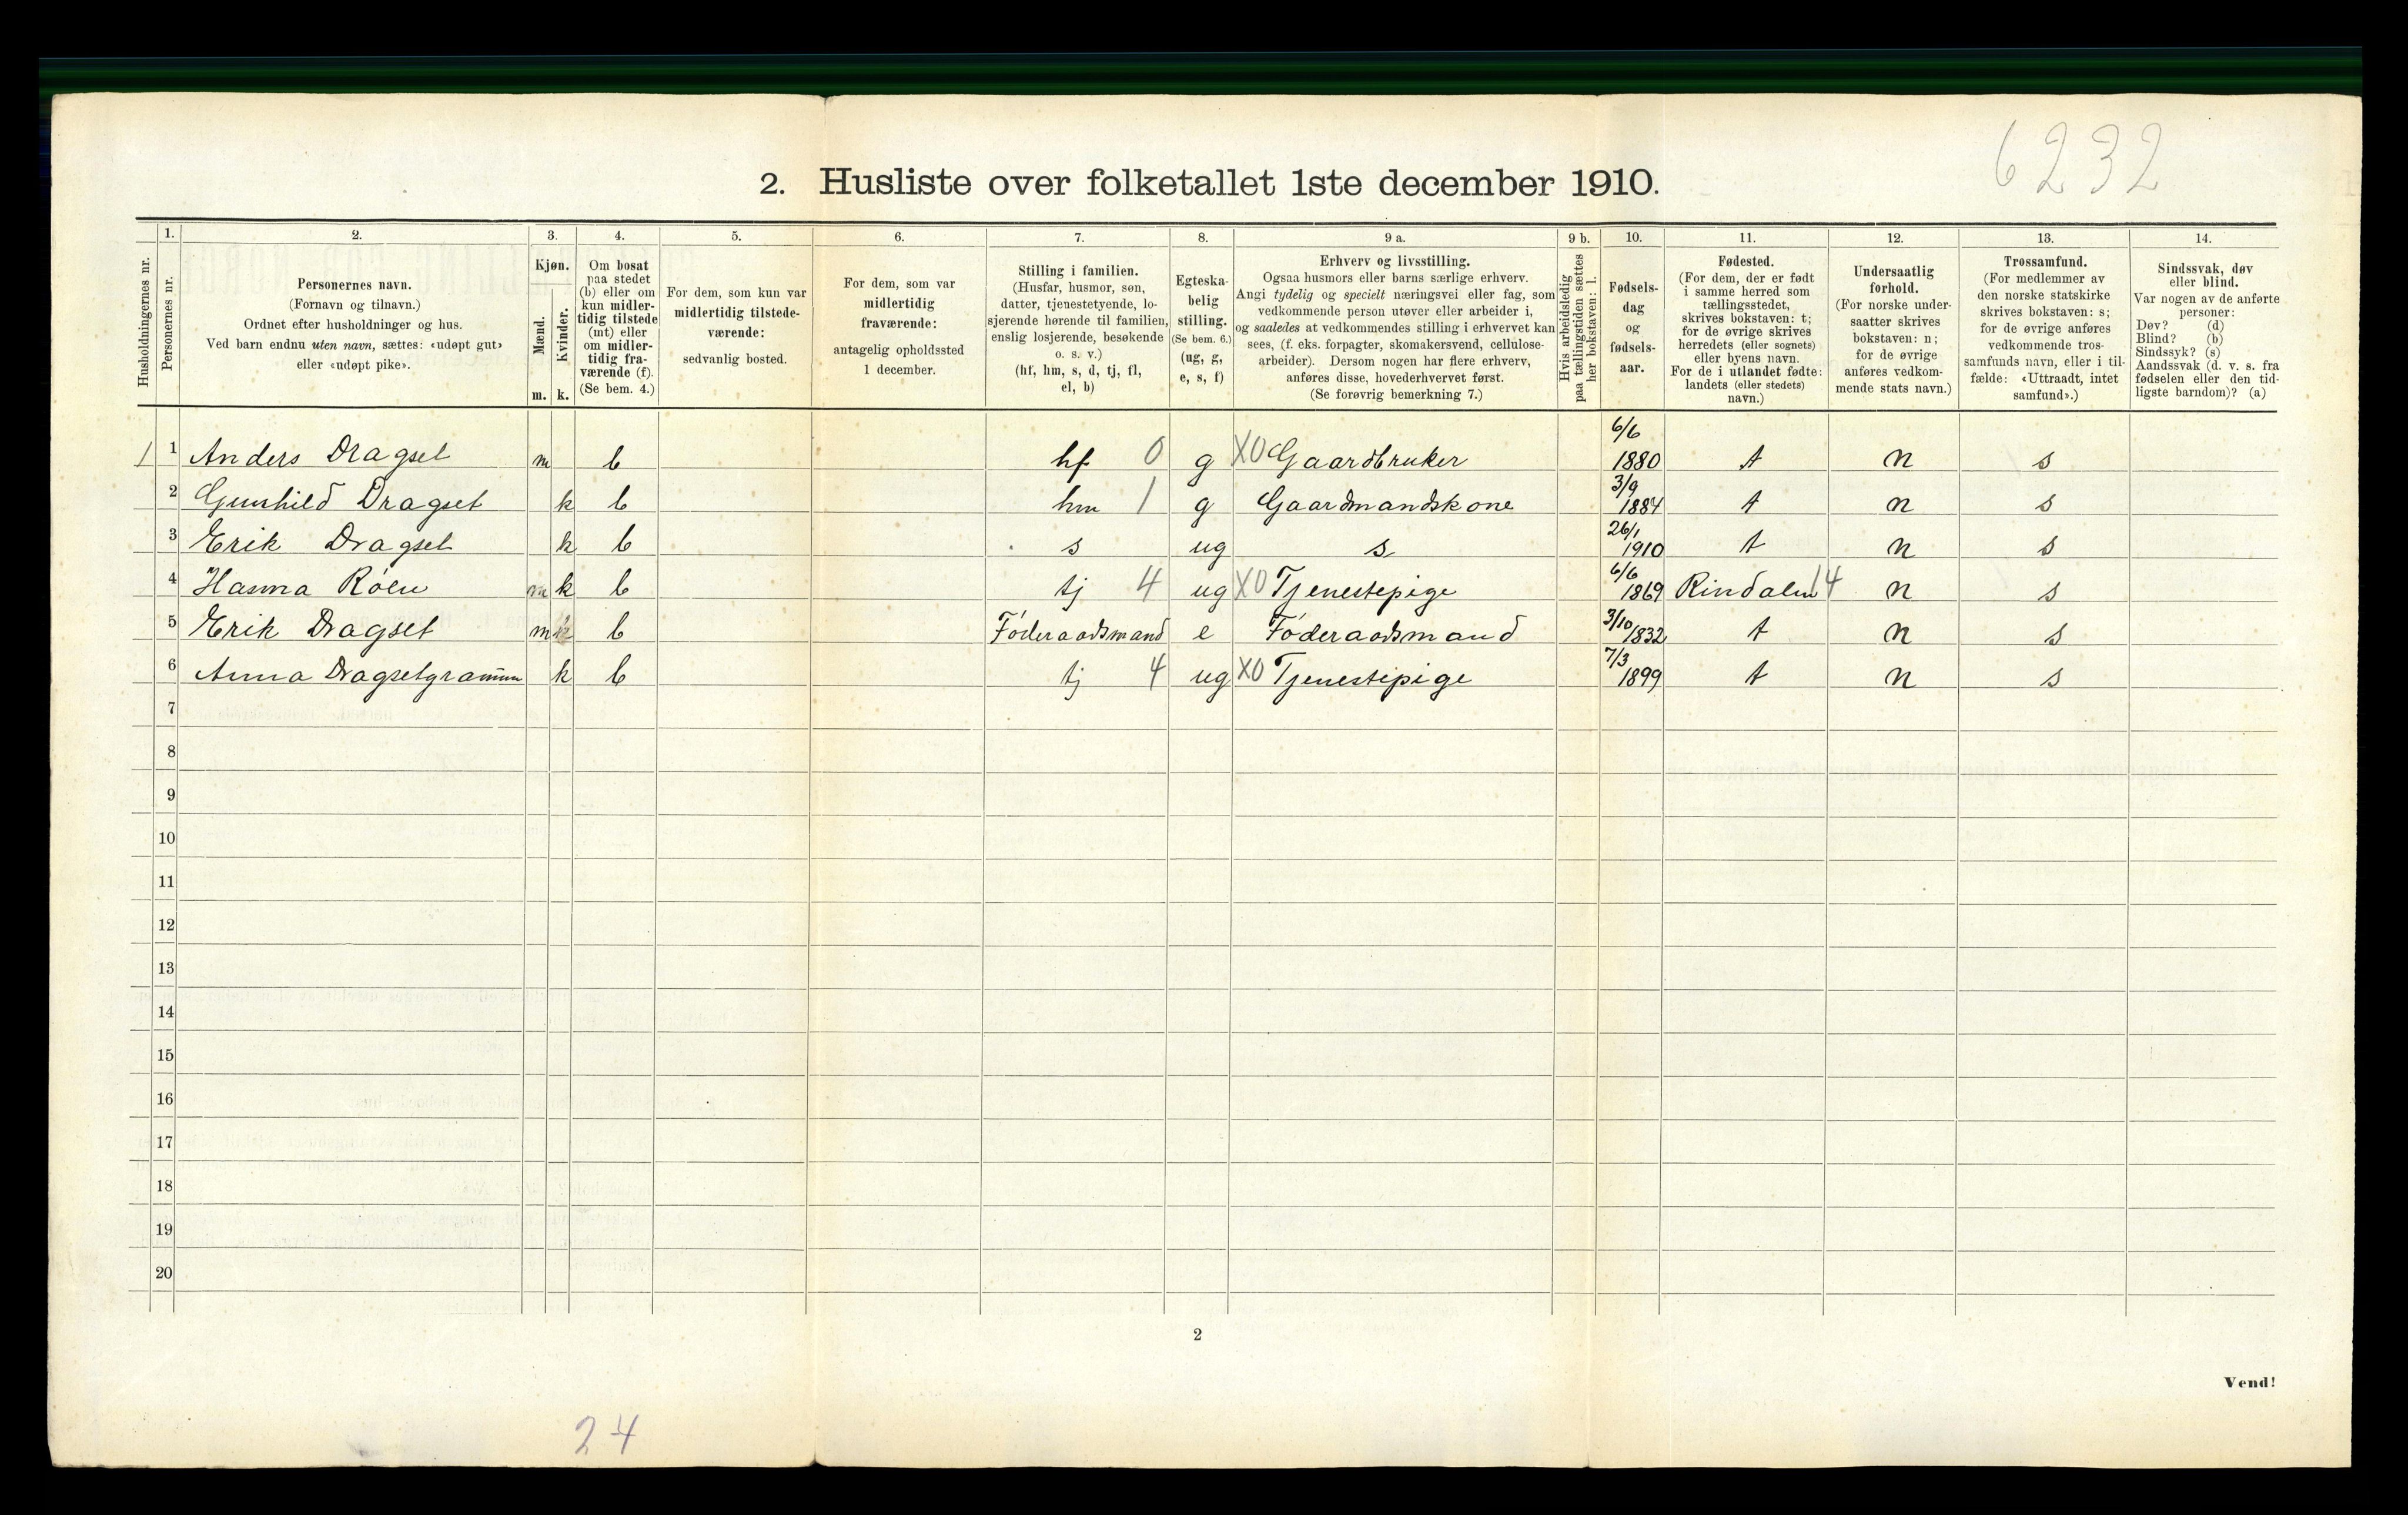 6232
2. Husliste over folketallet 1ste december 1910.
Husholdningernes nr.
1.
Personernes nr.
2.
Personernes navn.
(Fornavn og tilnavn.)
Ordnet efter husholdninger og hus.
Ved barn endnu uten navn, sættes: «udøpt gut»
eller «udøpt pike».
3.
Kjøn.
Mænd.
Kvinder.
m. k.
4.
Om bosat
paa stedet
(b) eller om
kun midler-
tidig tilstede
(mt) eller
om midler-
tidig fra-
værende (f).
(Se bem. 4.)
5.
For dem, som kun var
midlertidig tilstede-
værende:
sedvanlig bosted.
6.
For dem, som var
midlertidig
fraværende:
antagelig opholdssted
1 december.
7.
Stilling i familien.
(Husfar, husmor, søn,
datter, tjenestetyende, lo-
sjerende hørende til familien,
enslig losjerende, besøkende
o. s. v.)
(hf, hm, s, d, tj, fl,
el, b)
8.
Egteska-
belig
stilling.
(Se bem. 6.)
(ug, g,
e, s, f)
9 a.
Erhverv og livsstilling.
Ogsaa husmors eller barns særlige erhverv.
Angi tydelig og specielt næringsvei eller fag, som
vedkommende person utøver eller arbeider i,
og saaledes at vedkommendes stilling i erhvervet kan
sees, (f. eks. forpagter, skomakersvend, cellulose-
arbeider). Dersom nogen har flere erhverv,
anføres disse, hovederhvervet først.
(Se forøvrig bemerkning 7.)
9 b.
Hvis arbeidsledig
paa tællingstiden sættes
her bokstaven: l.
10.
Fødsels-
dag
og
fødsels-
aar.
11.
Fødested.
(For dem, der er født
i samme herred som
tællingsstedet,
skrives bokstaven: t;
for de øvrige skrives
herredets (eller sognets)
eller byens navn.
For de i utlandet fødte:
landets (eller stedets)
navn.)
12.
Undersaatlig
forhold.
(For norske under-
saatter skrives
bokstaven: n;
for de øvrige
anføres vedkom-
mende stats navn.)
13.
Trossamfund.
(For medlemmer av
den norske statskirke
skrives bokstaven: s;
for de øvrige anføres
vedkommende tros-
samfunds navn, eller i til-
fælde: «Uttraadt, intet
samfund».)
14.
Sindssvak, døv
eller blind.
Var nogen av de anførte
personer:
Døv? (d)
Blind? (b)
Sindssyk? (s)
Aandssvak (d. v. s. fra
fødselen eller den tid-
ligste barndom)? (a)
1 1 Anders Dragset m b hf 0 g X0 Gaardbruker 6/6 1880 t n s
2 Gunhild Dragset k b hm 1 g Gaardmandskone 3/9 1884 t n s
3 Erik Dragset k b s ug s 26/1 1910 t n s
4 Hanna Röen m k b tj 4 ug X0 Tjenestepige 6/6 1869 Rindalen 14 n s
5 Erik Dragset m k b Föderaadsmand e Föderaadsmand 3/10 1832 t n s
6 Anna Dragsetgramm k b tj 4 ug X0 Tjenestepige 7/3 1899 t n s
7
8
9
10
11
12
13
14
15
16
17
18
19
20
2
Vend!
24